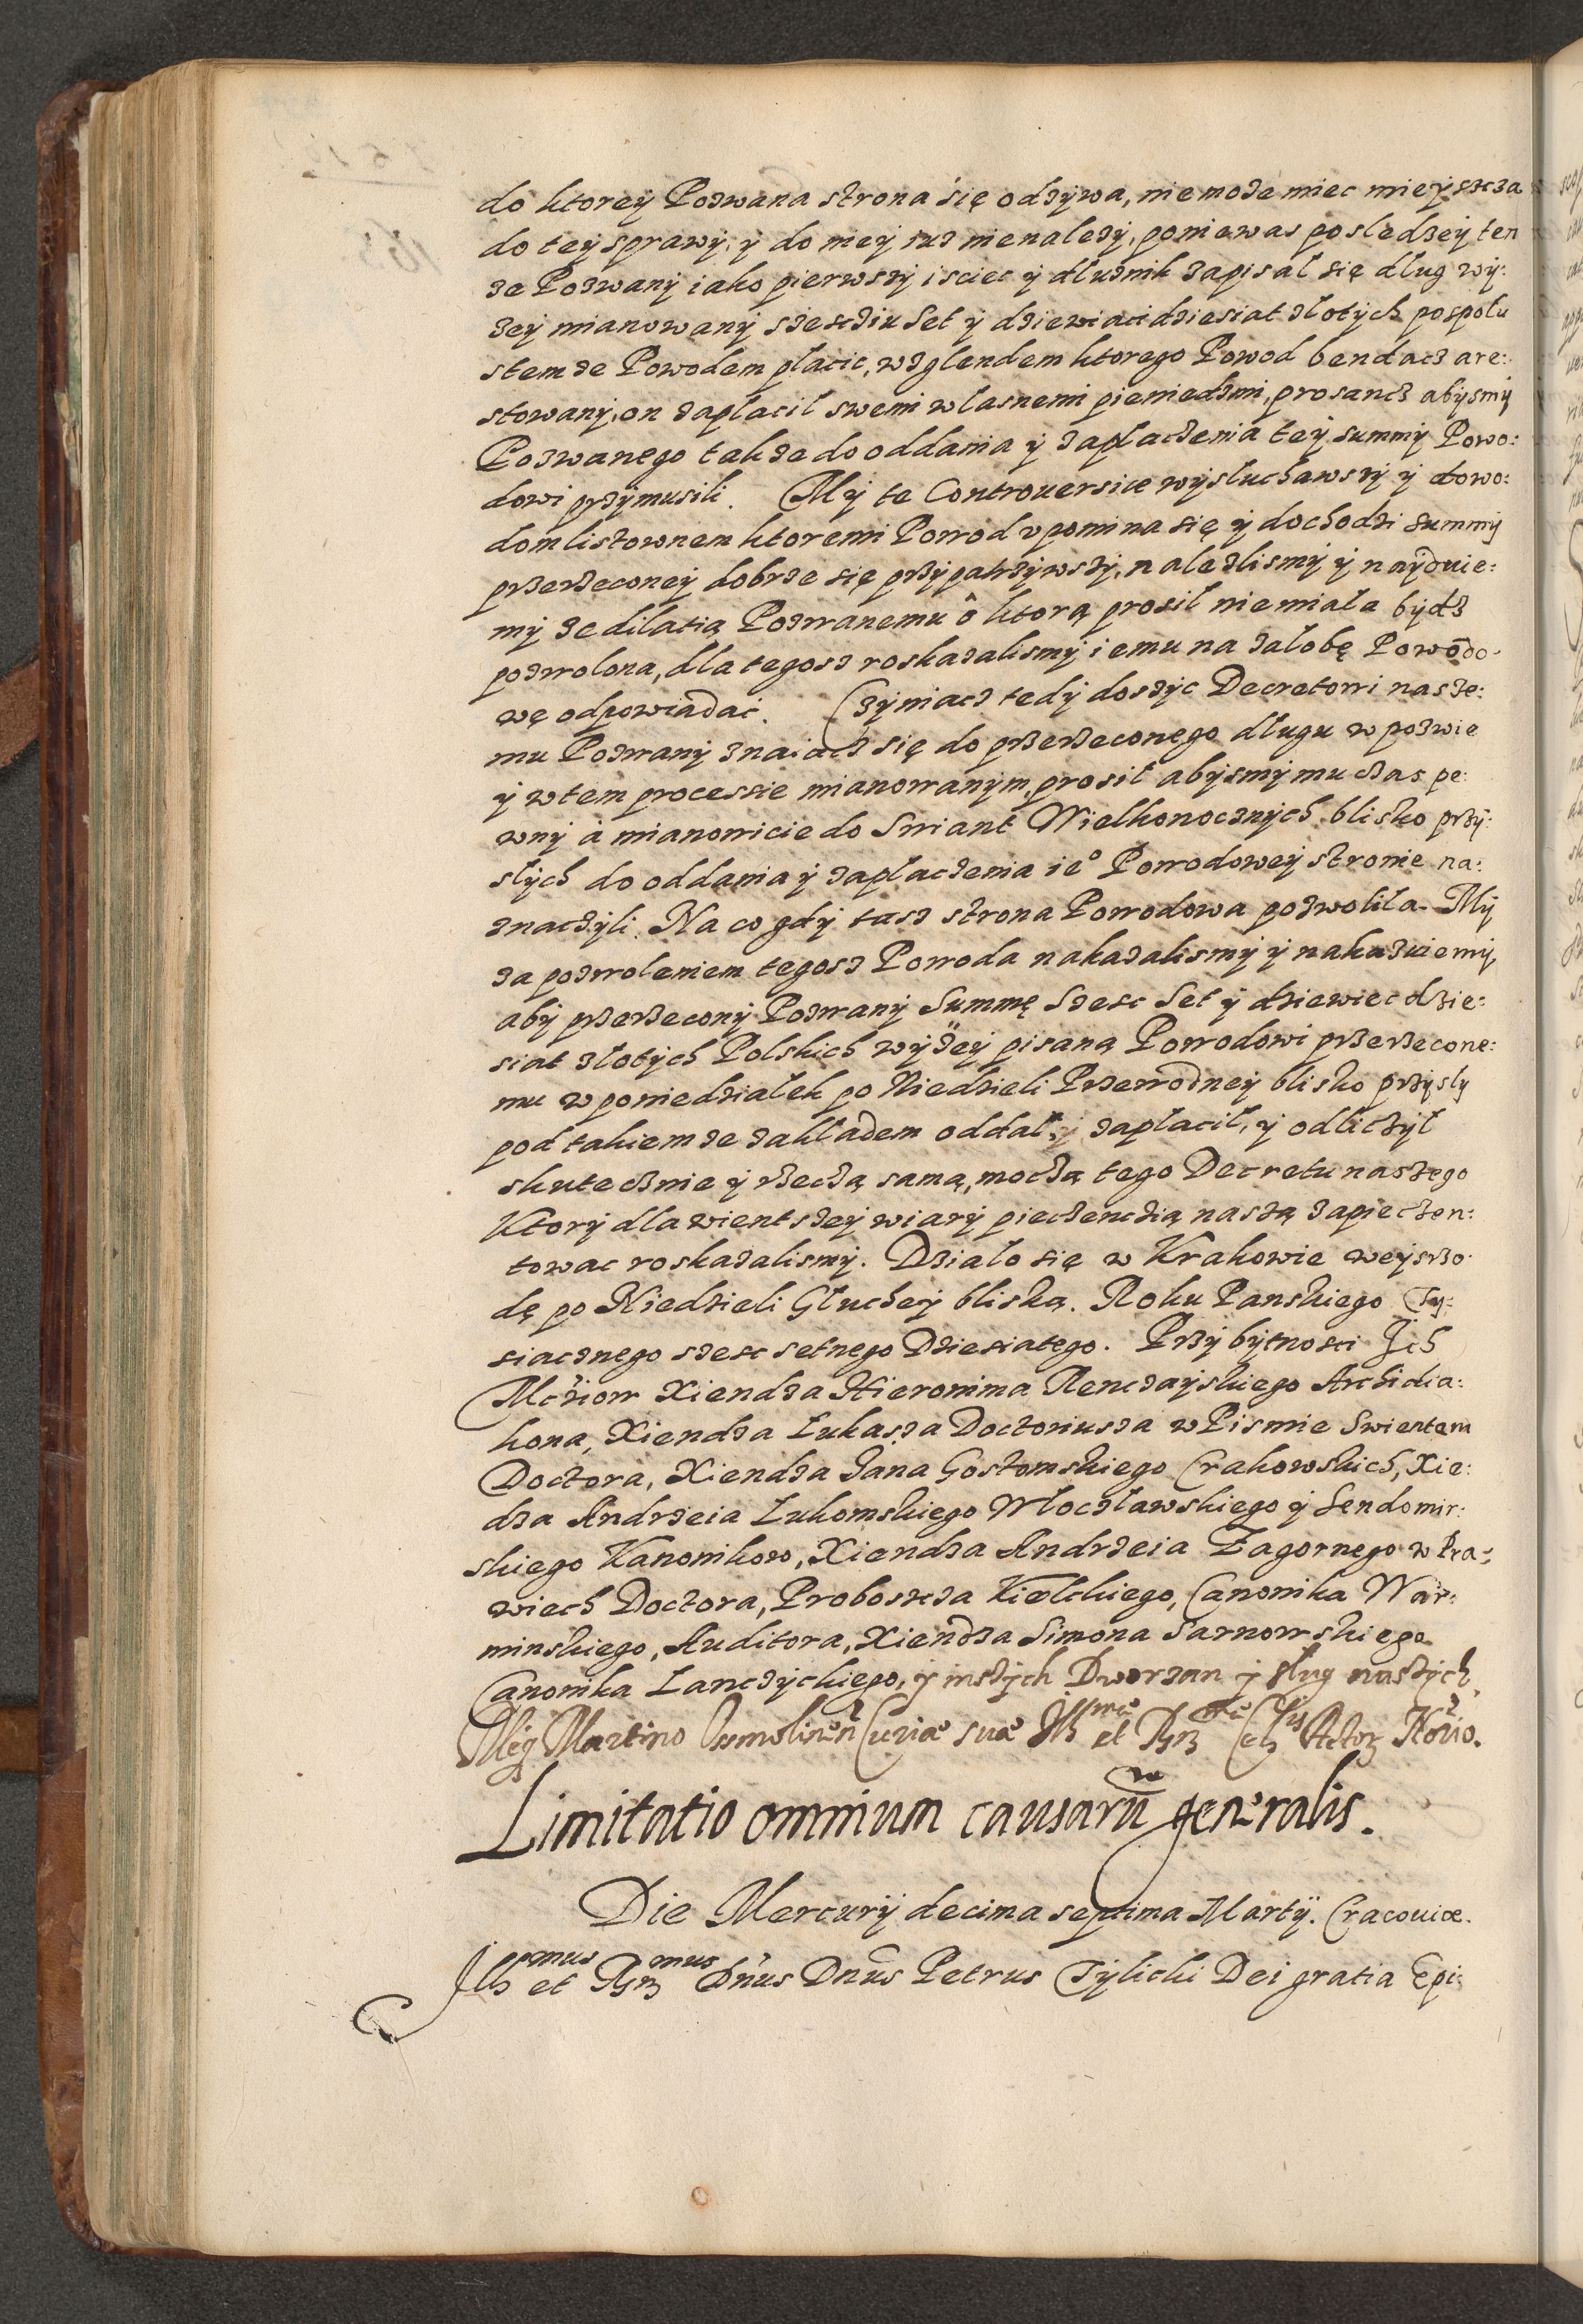 do ktorey Pozwana strona się odzywa, niemoze miec mieyscza
do tey sprawy, y do niey iuz nienalezy, poniewas posledzey ten
ze Pozwany iako pierwszy isciec y dłuznik zapisał się dług wy:
zey mianowany szescziu Set y dziewiacidziesiat złotych pospołu
stem ze Powodem płacic, wzglendem ktorego Powod bendacz are:
stowany, on zapłacił swemi własnemi pieniedzmi, prosancz abysmy
Pozwanego takze do oddania y zapłaczenia tey summy Powo:
dowi przymusili. My te Controuersiie wysłuchawszy y dowo:
dom listownem ktoremi Powod vpomina się y dochodzi summy
przerzeconey dobrze się przypatrzywszy, nalezlismy y nayduie:
my ze dilatią Pozwanemu o ktorą prosił niemiała bydz
pozwolona, dla tegosz roskazalismy iemu na załobę Powodo-
wę odpowiadać. Czyniacz tedy doszyc Decretowi nasze:
mu Pozwany znaiacz się do przerzeconego długu w pozwie
y w tem processie mianowanym, prosił abysmy mu czas pe:
wny a mianowicie do Swiant Wielkonocznych blisko przy:
słych do oddania y zapłaczenia ieº Powodowey stronie na:
znaczyli. Na co gdy tasz strona Powodowa pozwoliła. My
za pozwoleniem tegosz Powoda nakazalismy y nakazuiemy,
aby przerzecony Pozwany Summę Szesc Set y dziewiecdzie:
siat złotych Polskich wyzey pisaną Powodowi przerzecone:
mu w poniedziałek po Niedzieli Przewodney blisko przysły
pod takiem ze zakładem oddał, y zapłacił, y odliczył
skutecznie y rzeczą samą, moczą tego Decretu naszego
Ktory dla wientszey wiary pieczenczią naszą zapieczen:
towac roskazalismy. Działo się w Krakowie weysrzo-
dę po Niedzieli Głuchey bliską. Roku Panskiego Ty:
siacznego szesc setnego Dziesiatego. Przy bytnosci Ich
Mcziow Xiendza Hieronima Renczayskiego Archidia:
kona, Xiendza Łukasza Doctoriusza w Pismie Swientem
Doctora, Xiendza Jana Gostomskiego Crakowskich, Xie:
dza Andrzeia Łukomskiego Włocsławskiego y Sendomir:
skiego Kanonikow, Xiendza Andrzeia Zagornego w Pra:
wiech Doctora, Proboszcza Kielckiego, Canonika War:
minskiego, Auditora, Xiendza Simona Sarnowskiego
Canonika Lanczyckiego, y inszych Dworzan y sług naszych,
Meq Martino Curiæ suæ Illmæ et Rmæ Cels Actor Notrio.
Limitatio omnium causarũ generalis.
Die Mercurij decima septima Martij. Cracouiæ.
Illmus et Rmus Dnus Dnus Petrus Tylicki Dei gratia Epi: